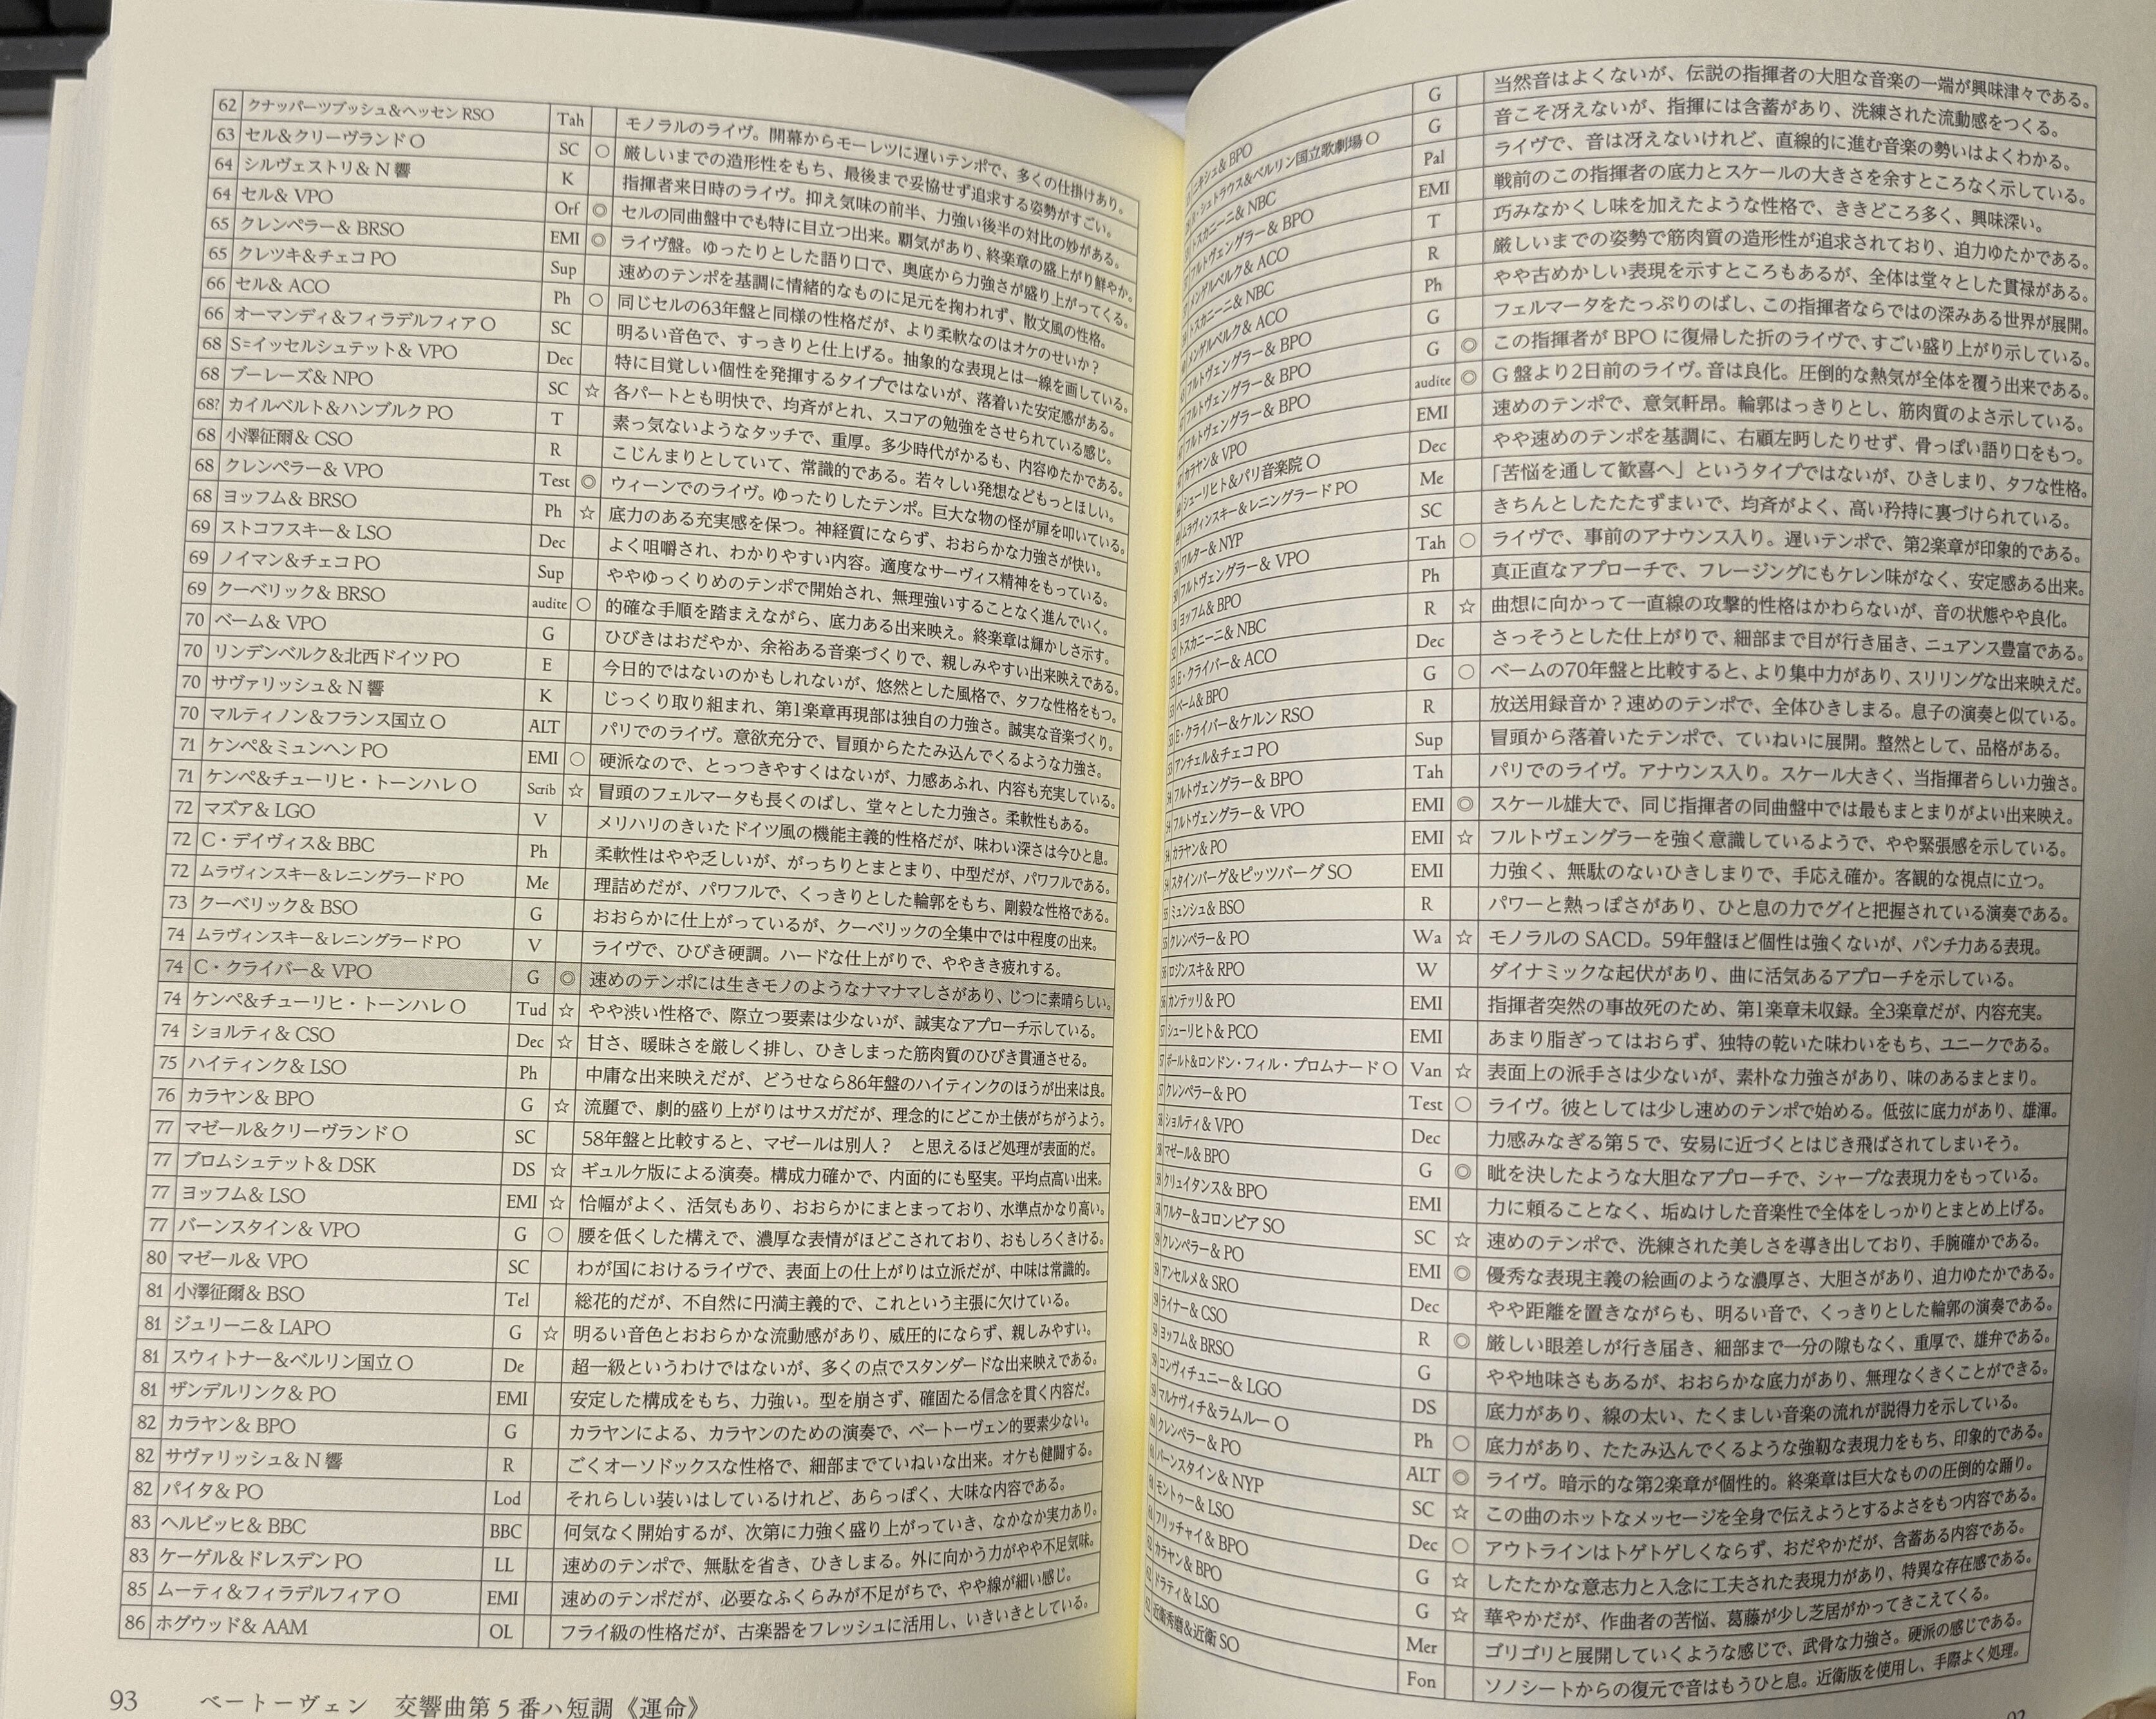 ニキシュ& BPO G 当然音はよくないが、伝説の指揮者の大胆な音楽の一端が興味津々である。
シュトラウス&ベルリン国立歌劇場 O G 音こそ冴えないが、指揮には含蓄があり、洗練された流動感をつくる。
トスカニーニ& NBC Pal ライヴで、音は冴えないけれど、直線的に進む音楽の勢いはよくわかる。
フルトヴェングラー& BPO EMI 戦前のこの指揮者の底力とスケールの大きさを余すところなく示している。
メンゲルベルク& ACO T 巧みなかくし味を加えたような性格で、ききどころ多く、興味深い。
トスカニーニ& NBC R 厳しいまでの姿勢で筋肉質の造形性が追求されており、迫力ゆたかである。
メンゲルベルク& ACO Ph やや古めかしい表現を示すところもあるが、全体は堂々とした貫禄がある。
フルトヴェングラー& BPO G フェルマータをたっぷりのばし、この指揮者ならではの深みある世界が展開。
フルトヴェングラー& BPO G ◎ この指揮者が BPO に復帰した折のライヴで、すごい盛り上がり示している。
フルトヴェングラー& BPO audite ◎ G 盤より2日前のライヴ。音は良化。圧倒的な熱気が全体を覆う出来である。
カラヤン& VPO EMI 速めのテンポで、意気軒昂。輪郭はっきりとし、筋肉質のよさ示している。
シューリヒト&パリ音楽院 O Dec やや速めのテンポを基調に、右顧左眄したりせず、骨っぽい語り口をもつ。
ムラヴィンスキー&レニングラード PO Me 「苦悩を通して歓喜へ」というタイプではないが、ひきしまり、タフな性格。
ワルター& NYP SC きちんとしたたたずまいで、均斉がよく、高い矜持に裏づけられている。
フルトヴェングラー& VPO Tah ○ ライヴで、事前のアナウンス入り。遅いテンポで、第2楽章が印象的である。
ヨッフム& BPO Ph 真正直なアプローチで、フレージングにもケレン味がなく、安定感ある出来。
トスカニーニ& NBC R ☆ 曲想に向かって一直線の攻撃的性格はかわらないが、音の状態やや良化。
E・クライバー& ACO Dec さっそうとした仕上がりで、細部まで目が行き届き、ニュアンス豊富である。
ベーム& BPO G ○ ベームの70年盤と比較すると、より集中力があり、スリリングな出来映えだ。
E・クライバー&ケルン RSO R 放送用録音か？速めのテンポで、全体ひきしまる。息子の演奏と似ている。
アンチェル&チェコ PO Sup 冒頭から落着いたテンポで、ていねいに展開。整然として、品格がある。
フルトヴェングラー& BPO Tah パリでのライヴ。アナウンス入り。スケール大きく、当指揮者らしい力強さ。
フルトヴェングラー& VPO EMI ◎ スケール雄大で、同じ指揮者の同曲盤中では最もまとまりがよい出来映え。
カラヤン& PO EMI ☆ フルトヴェングラーを強く意識しているようで、やや緊張感を示している。
スタインバーグ&ピッツバーグ SO EMI 力強く、無駄のないひきしまりで、手応え確か。客観的な視点に立つ。
ミュンシュ& BSO R パワーと熱っぽさがあり、ひと息の力でグイと把握されている演奏である。
クレンペラー& PO Wa ☆ モノラルの SACD。59年盤ほど個性は強くないが、パンチ力ある表現。
ロジンスキ& RPO W ダイナミックな起伏があり、曲に活気あるアプローチを示している。
カンテッリ& PO EMI 指揮者突然の事故死のため、第1楽章未収録。全3楽章だが、内容充実。
シューリヒト& PCO EMI あまり脂ぎってはおらず、独特の乾いた味わいをもち、ユニークである。
ボールト&ロンドン・フィル・プロムナード O Van ☆ 表面上の派手さは少ないが、素朴な力強さがあり、味のあるまとまり。
クレンペラー& PO Test ○ ライヴ。彼としては少し速めのテンポで始める。低弦に底力があり、雄渾。
ショルティ& VPO Dec 力感みなぎる第５で、安易に近づくとはじき飛ばされてしまいそう。
マゼール& BPO G ◎ 眦を決したような大胆なアプローチで、シャープな表現力をもっている。
クリュイタンス& BPO EMI 力に頼ることなく、垢ぬけした音楽性で全体をしっかりとまとめ上げる。
ワルター&コロンビア SO SC ☆ 速めのテンポで、洗練された美しさを導き出しており、手腕確かである。
クレンペラー& PO EMI ◎ 優秀な表現主義の絵画のような濃厚さ、大胆さがあり、迫力ゆたかである。
アンセルメ& SRO Dec やや距離を置きながらも、明るい音で、くっきりとした輪郭の演奏である。
ライナー& CSO R ◎ 厳しい眼差しが行き届き、細部まで一分の隙もなく、重厚で、雄弁である。
ヨッフム& BRSO G やや地味さもあるが、おおらかな底力があり、無理なくきくことができる。
コンヴィチュニー& LGO DS 底力があり、線の太い、たくましい音楽の流れが説得力を示している。
マルケヴィチ&ラムルー O Ph ○ 底力があり、たたみ込んでくるような強靱な表現力をもち、印象的である。
クレンペラー& PO ALT ◎ ライヴ。暗示的な第2楽章が個性的。終楽章は巨大なものの圧倒的な踊り。
バーンスタイン& NYP SC ☆ この曲のホットなメッセージを全身で伝えようとするよさをもつ内容である。
モントゥー& LSO Dec ○ アウトラインはトゲトゲしくならず、おだやかだが、含蓄ある内容である。
フリッチャイ& BPO G ☆ したたかな意志力と入念に工夫された表現力があり、特異な存在感である。
カラヤン& BPO G ☆ 華やかだが、作曲者の苦悩、葛藤が少し芝居がかってきこえてくる。
ドラティ& LSO Mer ゴリゴリと展開していくような感じで、武骨な力強さ。硬派の感じである。
近衛秀麿&近衛 SO Fon ソノシートからの復元で音はもうひと息。近衛版を使用し、手際よく処理。
92
62 クナッパーツブッシュ&ヘッセン RSO Tah モノラルのライヴ。開幕からモーレツに遅いテンポで、多くの仕掛けあり。
63 セル&クリーヴランド O SC ○ 厳しいまでの造形性をもち、最後まで妥協せず追求する姿勢がすごい。
64 シルヴェストリ& N 響 K 指揮者来日時のライヴ。抑え気味の前半、力強い後半の対比の妙がある。
64 セル& VPO Orf ◎ セルの同曲盤中でも特に目立つ出来。覇気があり、終楽章の盛上がり鮮やか。
65 クレンペラー& BRSO EMI ◎ ライヴ盤。ゆったりとした語り口で、奥底から力強さが盛り上がってくる。
65 クレツキ&チェコ PO Sup 速めのテンポを基調に情緒的なものに足元を掬われず、散文風の性格。
66 セル& ACO Ph ○ 同じセルの63年盤と同様の性格だが、より柔軟なのはオケのせいか？
66 オーマンディ&フィラデルフィア O SC 明るい音色で、すっきりと仕上げる。抽象的な表現とは一線を画している。
68 S=イッセルシュテット& VPO Dec 特に目覚しい個性を発揮するタイプではないが、落着いた安定感がある。
68 ブーレーズ& NPO SC ☆ 各パートとも明快で、均斉がとれ、スコアの勉強をさせられている感じ。
68? カイルベルト&ハンブルク PO T 素っ気ないようなタッチで、重厚。多少時代がかるも、内容ゆたかである。
68 小澤征爾& CSO R こじんまりとしていて、常識的である。若々しい発想などもっとほしい。
68 クレンペラー& VPO Test ◎ ウィーンでのライヴ。ゆったりしたテンポ。巨大な物の怪が扉を叩いている。
68 ヨッフム& BRSO Ph ☆ 底力のある充実感を保つ。神経質にならず、おおらかな力強さが快い。
69 ストコフスキー& LSO Dec よく咀嚼され、わかりやすい内容。適度なサーヴィス精神をもっている。
69 ノイマン&チェコ PO Sup ややゆっくりめのテンポで開始され、無理強いすることなく進んでいく。
69 クーベリック& BRSO audite ○ 的確な手順を踏まえながら、底力ある出来映え。終楽章は輝かしさ示す。
70 ベーム& VPO G ひびきはおだやか、余裕ある音楽づくりで、親しみやすい出来映えである。
70 リンデンベルク&北西ドイツ PO E 今日的ではないのかもしれないが、悠然とした風格で、タフな性格をもつ。
70 サヴァリッシュ& N 響 K じっくり取り組まれ、第1楽章再現部は独自の力強さ。誠実な音楽づくり。
70 マルティノン&フランス国立 O ALT パリでのライヴ。意欲充分で、冒頭からたたみ込んでくるような力強さ。
71 ケンペ&ミュンヘン PO EMI ○ 硬派なので、とっつきやすくはないが、力感あふれ、内容も充実している。
71 ケンペ&チューリヒ・トーンハレ O Scrib ☆ 冒頭のフェルマータも長くのばし、堂々とした力強さ。柔軟性もある。
72 マズア& LGO V メリハリのきいたドイツ風の機能主義的性格だが、味わい深さは今ひと息。
72 C・デイヴィス& BBC Ph 柔軟性はやや乏しいが、がっちりとまとまり、中型だが、パワフルである。
72 ムラヴィンスキー&レニングラード PO Me 理詰めだが、パワフルで、くっきりとした輪郭をもち、剛毅な性格である。
73 クーベリック& BSO G おおらかに仕上がっているが、クーベリックの全集中では中程度の出来。
74 ムラヴィンスキー&レニングラード PO V ライヴで、ひびき硬調。ハードな仕上がりで、ややきき疲れする。
74 C・クライバー& VPO G ◎ 速めのテンポには生きモノのようなナマナマしさがあり、じつに素晴らしい。
74 ケンペ&チューリヒ・トーンハレ O Tud ☆ やや渋い性格で、際立つ要素は少ないが、誠実なアプローチ示している。
74 ショルティ& CSO Dec ☆ 甘さ、曖昧さを厳しく排し、ひきしまった筋肉質のひびき貫通させる。
75 ハイティンク& LSO Ph 中庸な出来映えだが、どうせなら86年盤のハイティンクのほうが出来は良。
76 カラヤン& BPO G ☆ 流麗で、劇的盛り上がりはサスガだが、理念的にどこか土俵がちがうよう。
77 マゼール&クリーヴランド O SC 58年盤と比較すると、マゼールは別人？　と思えるほど処理が表面的だ。
77 ブロムシュテット& DSK DS ☆ ギュルケ版による演奏。構成力確かで、内面的にも堅実。平均点高い出来。
77 ヨッフム& LSO EMI ☆ 恰幅がよく、活気もあり、おおらかにまとまっており、水準点かなり高い。
77 バーンスタイン& VPO G ○ 腰を低くした構えで、濃厚な表情がほどこされており、おもしろくきける。
80 マゼール& VPO SC わが国におけるライヴで、表面上の仕上がりは立派だが、中味は常識的。
81 小澤征爾& BSO Tel 総花的だが、不自然に円満主義的で、これという主張に欠けている。
81 ジュリーニ& LAPO G ☆ 明るい音色とおおらかな流動感があり、威圧的にならず、親しみやすい。
81 スウィトナー&ベルリン国立 O De 超一級というわけではないが、多くの点でスタンダードな出来映えである。
81 ザンデルリンク& PO EMI 安定した構成をもち、力強い。型を崩さず、確固たる信念を貫く内容だ。
82 カラヤン& BPO G カラヤンによる、カラヤンのための演奏で、ベートーヴェン的要素少ない。
82 サヴァリッシュ& N 響 R ごくオーソドックスな性格で、細部までていねいな出来。オケも健闘する。
82 パイタ& PO Lod それらしい装いはしているけれど、あらっぽく、大味な内容である。
83 ヘルビッヒ& BBC BBC 何気なく開始するが、次第に力強く盛り上がっていき、なかなか実力あり。
83 ケーゲル&ドレスデン PO LL 速めのテンポで、無駄を省き、ひきしまる。外に向かう力がやや不足気味。
85 ムーティ&フィラデルフィア O EMI 速めのテンポだが、必要なふくらみが不足がちで、やや線が細い感じ。
86 ホグウッド& AAM OL フライ級の性格だが、古楽器をフレッシュに活用し、いきいきとしている。
93 ベートーヴェン　交響曲第５番ハ短調《運命》